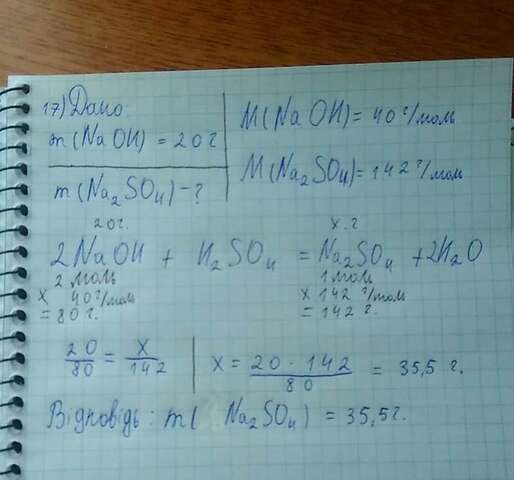 17) Дано:
m(NaOH) = 20 г
m(Na₂SO₄) - ?
M(NaOH) = 40 г/моль
M(Na₂SO₄) = 142 г/моль
20 г. x г
2NaOH + H₂SO₄ = Na₂SO₄ + 2H₂O
2 моль 1 моль
x 40 г/моль x 142 г/моль
= 80 г. = 142 г.
20/80 = x/142 | x = 20 · 142/80 = 35,5 г.
Відповідь: m( Na₂SO₄) = 35,5 г.